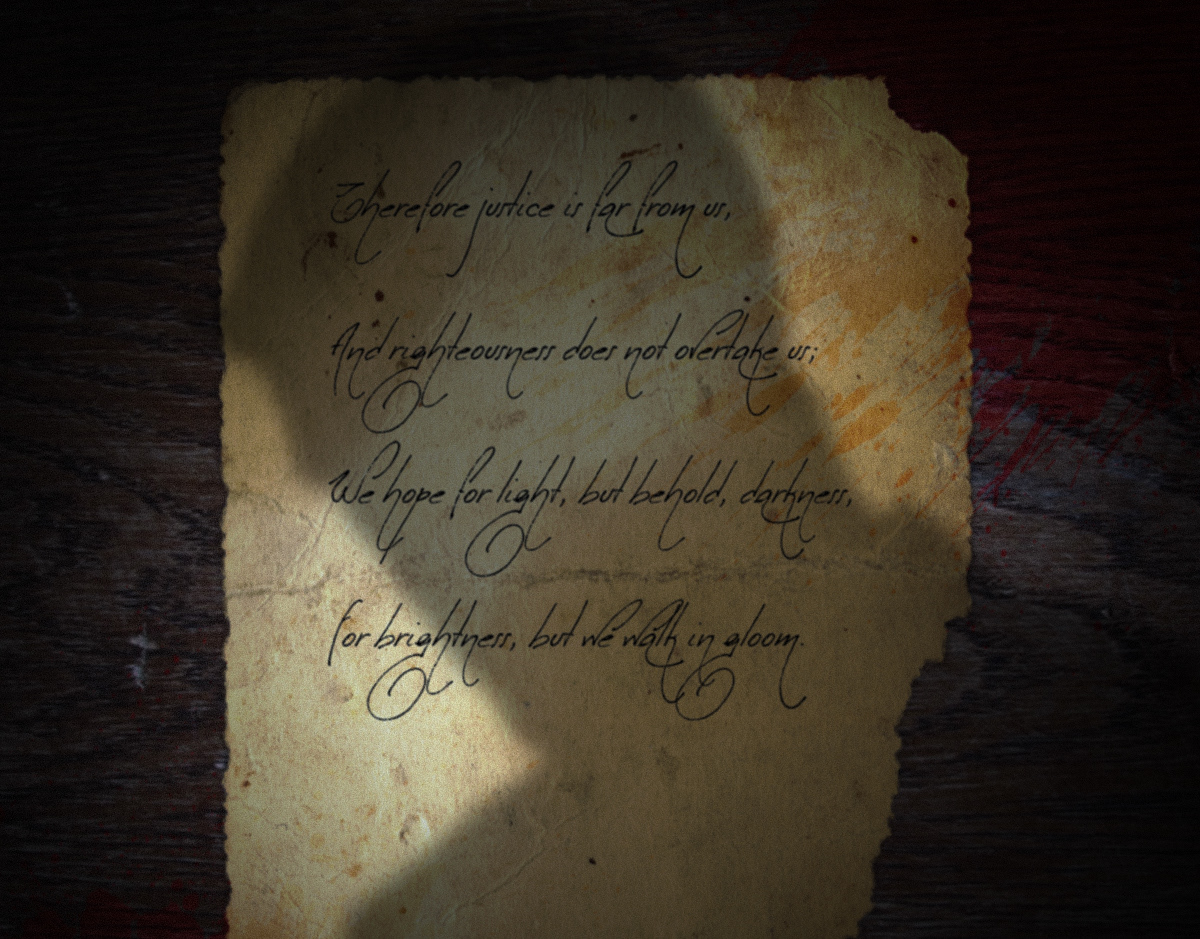 Therefore justice is far from us,
And righteousness does not overtake us;
We hope for light, but behold, darkness,
for brightness, but we walk in gloom.